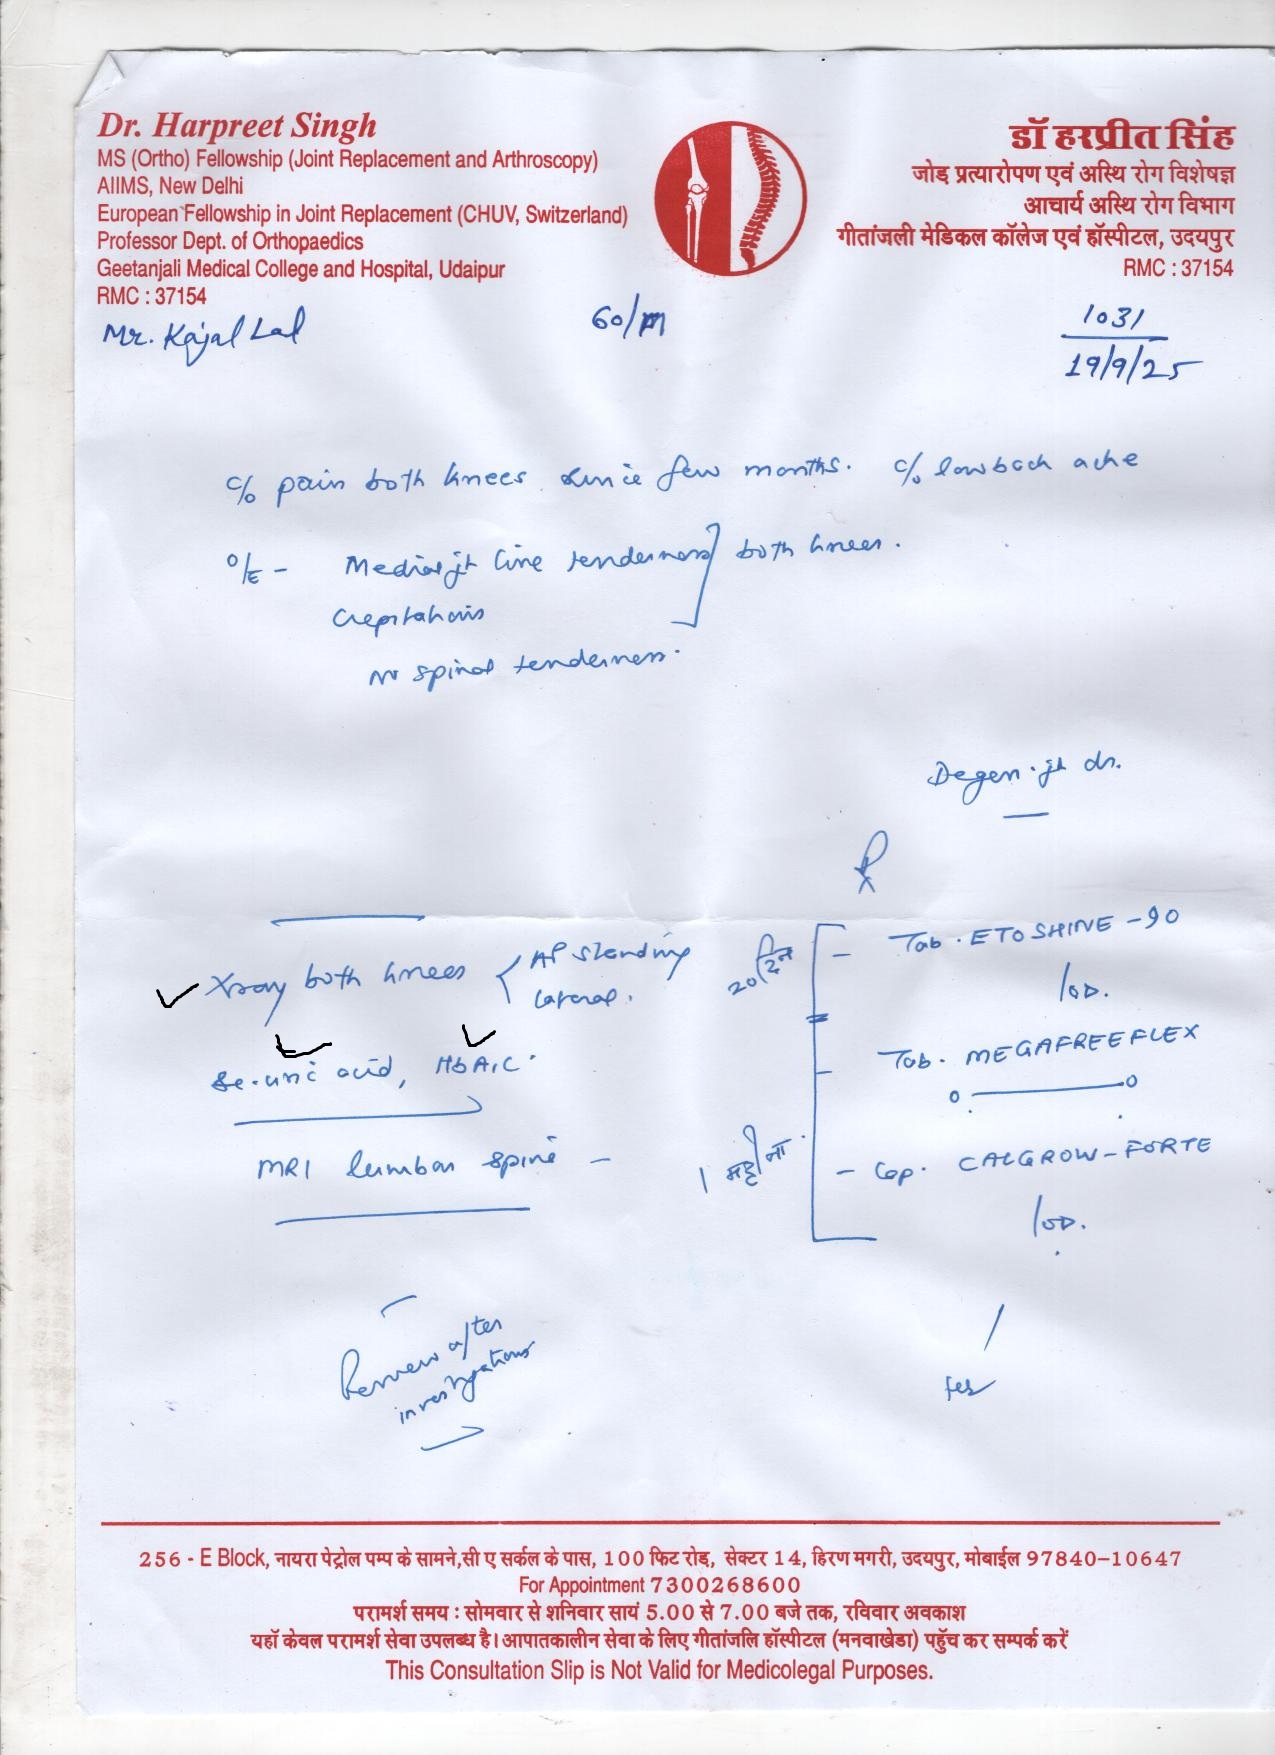 Dr. Harpreet Singh
MS (Ortho) Fellowship (Joint Replacement and Arthroscopy)
AIIMS, New Delhi
European Fellowship in Joint Replacement (CHUV, Switzerland)
Professor Dept. of Orthopaedics
Geetanjali Medical College and Hospital, Udaipur
RMC : 37154
डॉ हरप्रीत सिंह
जोड़ प्रत्यारोपण एवं अस्थि रोग विशेषज्ञ
आचार्य अस्थि रोग विभाग
गीतांजली मेडिकल कॉलेज एवं हॉस्पीटल, उदयपुर
RMC : 37154
Mr. Kajal Lal
60/M
1031
19/9/25
c/o pain both knees since few months. c/o low back ache
o/E - Medial jt line tenderness both knees.
Crepitations
no spinal tenderness.
Degen. jt ds.
Xray both knees
AP standing
Lateral.
Se. uric acid, HbA1C.
MRI lumbar spine -
Review after
investigations
20 दिन
- Tab. ETOSHINE - 90
1 OD.
- Tab. MEGAFREEFLEX
0 0
1 महीना
- Cap. CALGROW-FORTE
1 OD.
256 - E Block, नायरा पेट्रोल पम्प के सामने,सी ए सर्कल के पास, 100 फिट रोड़, सेक्टर 14, हिरण मगरी, उदयपुर, मोबाईल 97840-10647
For Appointment 7300268600
परामर्श समय : सोमवार से शनिवार सायं 5.00 से 7.00 बजे तक, रविवार अवकाश
यहॉ केवल परामर्श सेवा उपलब्ध है। आपातकालीन सेवा के लिए गीतांजलि हॉस्पीटल (मनवाखेडा) पहुँच कर सम्पर्क करें
This Consultation Slip is Not Valid for Medicolegal Purposes.